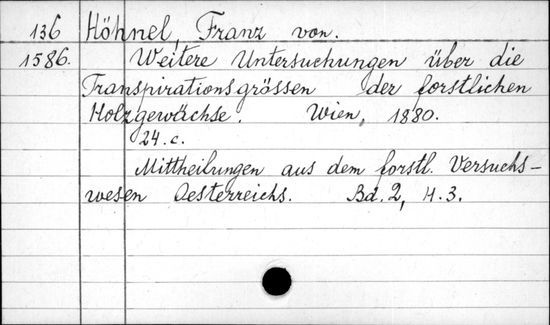 136 Höhnel, Franz von.
1586. Weitere Untersuchungen über die
Transpirationsgrössen der forstlichen
Holzgewächse. Wien, 1880.
24. c.
Mittheilungen aus dem forstl. Versuchs-
wesen Oesterreichs. Bd. 2, H. 3.